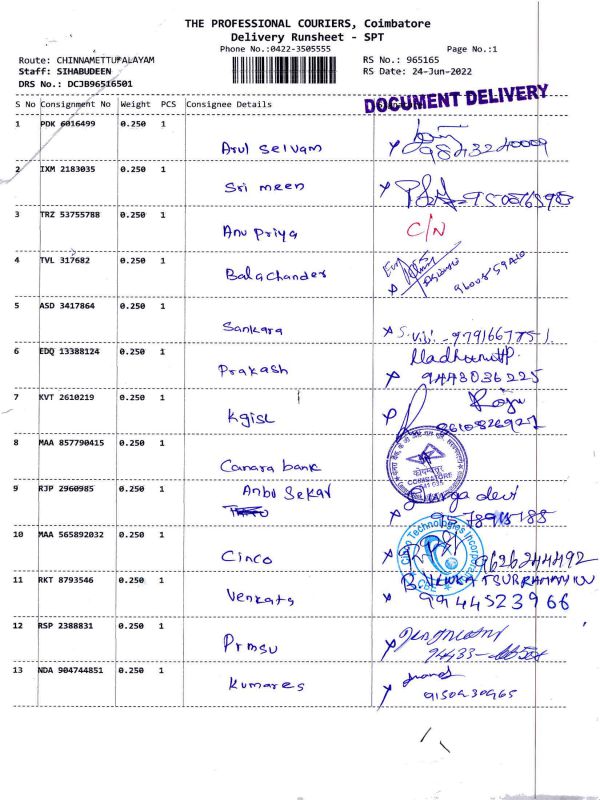 THE PROFESSIONAL COURIERS, Coimbatore
Delivery Runsheet - SPT
Phone No.:0422-3505555
Page No.:1
Route: CHINNAMETTUPALAYAM
RS No.: 965165
Staff: SIHABUDEEN
RS Date: 24-Jun-2022
DRS No.: DCJB96516501
S No Consignment No Weight PCS Consignee Details
DOCUMENT DELIVERY
1 PDK 6016499 0.250 1
Arul Selvam
9843240009
2 IXM 2183035 0.250 1
Sri meen
3 TRZ 53755788 0.250 1
Anu Priya C/N
4 TVL 317682 0.250 1
Balachander
5 ASD 3417864 0.250 1
Sankara
6 EDQ 13388124 0.250 1
Prakash
9443036225
7 KVT 2610219 0.250 1
Kgisl
8610826927
8 MAA 857790415 0.250 1
Canara bank
COIMBATORE
9 RJP 2960985 0.250 1
Anbu Sekar
Durga devi
10 MAA 565892032 0.250 1
Cinco 9626244492
11 RKT 8793546 0.250 1
Venkats
9944523966
12 RSP 2388831 0.250 1
Prmsu
13 NDA 904744851 0.250 1
Kumares
9150930965